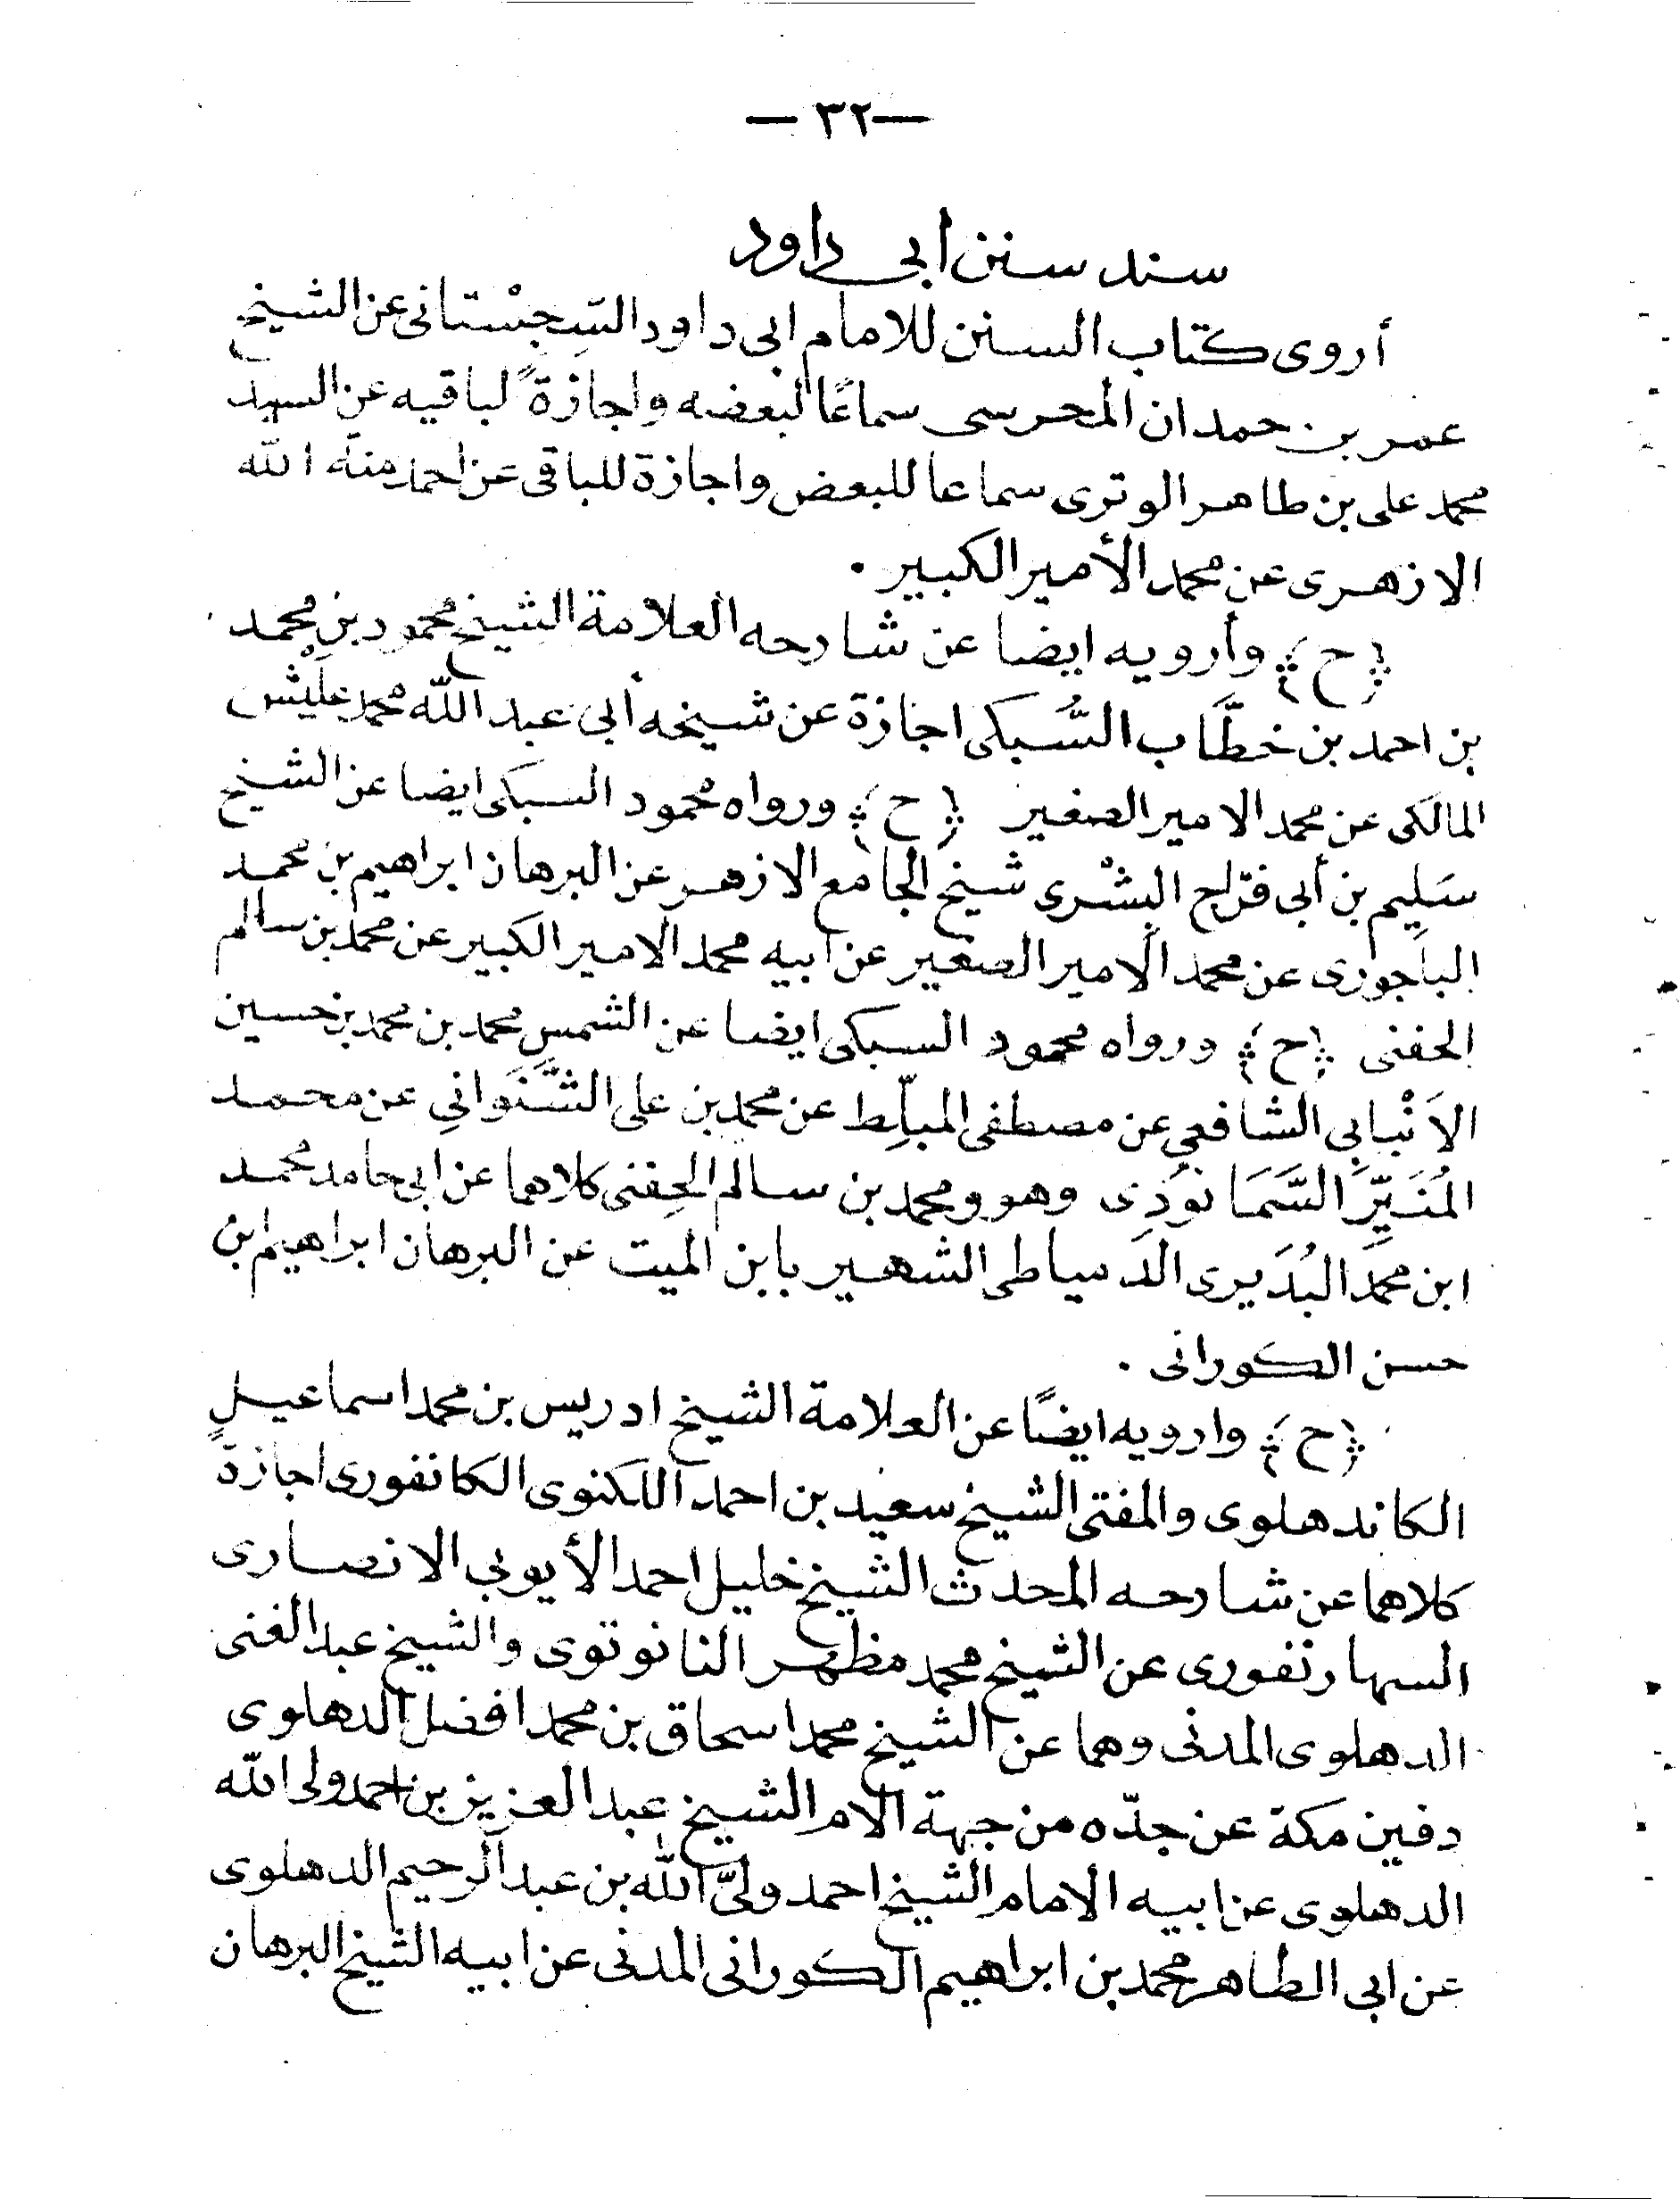 — ٣٢ —
سند سنن ابى داود
أروى كتاب السنن للامام ابى داود السِّجِسْتانى عن الشيخ
عمر بن حمدان المحرسى سماعًا لبعضه واجازةً لباقيه عن السيد
محمد على بن طاهر الوترى سماعا للبعض واجازة للباقى عن احمد منة الله
الازهرى عن محمد الأمير الكبير .
(ح) وأرويه ايضا عن شارحه العلامة الشيخ محمود بن محمد
بن احمد بن خطَّاب السُّبكى اجازة عن شيخه أبى عبد الله محمد عليش
المالكى عن محمد الامير الصغير (ح) ورواه محمود السبكى ايضا عن الشيخ
سَلِيم بن أبى فرّاج البِشْرى شيخ الجامع الازهر عن البرهان ابراهيم بن محمد
الباجورى عن محمد الامير الصغير عن ابيه محمد الامير الكبير عن محمد بن سالم
الحفنى (ح) ورواه محمود السبكى ايضا عن الشمس محمد بن محمد بن حسين
الاَنْبابى الشافعى عن مصطفى المبلِّط عن محمد بن على الشَّنَوانِى عن محمد
المُنَيِّر السَّمَانودِى وهو ومحمد بن سالم الحِفنى كلاهما عن ابى حامد محمد
ابن محمد البُدَيرى الدمياطى الشهير بابن الميت عن البرهان ابراهيم بن
حسن الكورانى .
(ح) وارويه ايضًا عن العلامة الشيخ ادريس بن محمد اسماعيل
الكاندهلوى والمفتى الشيخ سعيد بن احمد اللكنوى الكانفورى اجازة
كلاهما عن شارحه المحدث الشيخ خليل احمد الأيوبى الانصارى
السهارنفورى عن الشيخ محمد مظهر النانوتوى والشيخ عبد الغنى
الدهلوى المدنى وهما عن الشيخ محمد اسحاق بن محمد افضل الدهلوى
دفين مكة عن جدّه من جهة الام الشيخ عبد العزيز بن احمد ولى الله
الدهلوى عن ابيه الامام الشيخ احمد ولىّ الله بن عبد الرحيم الدهلوى
عن ابى الطاهر محمد بن ابراهيم الكورانى المدنى عن ابيه الشيخ البرهان